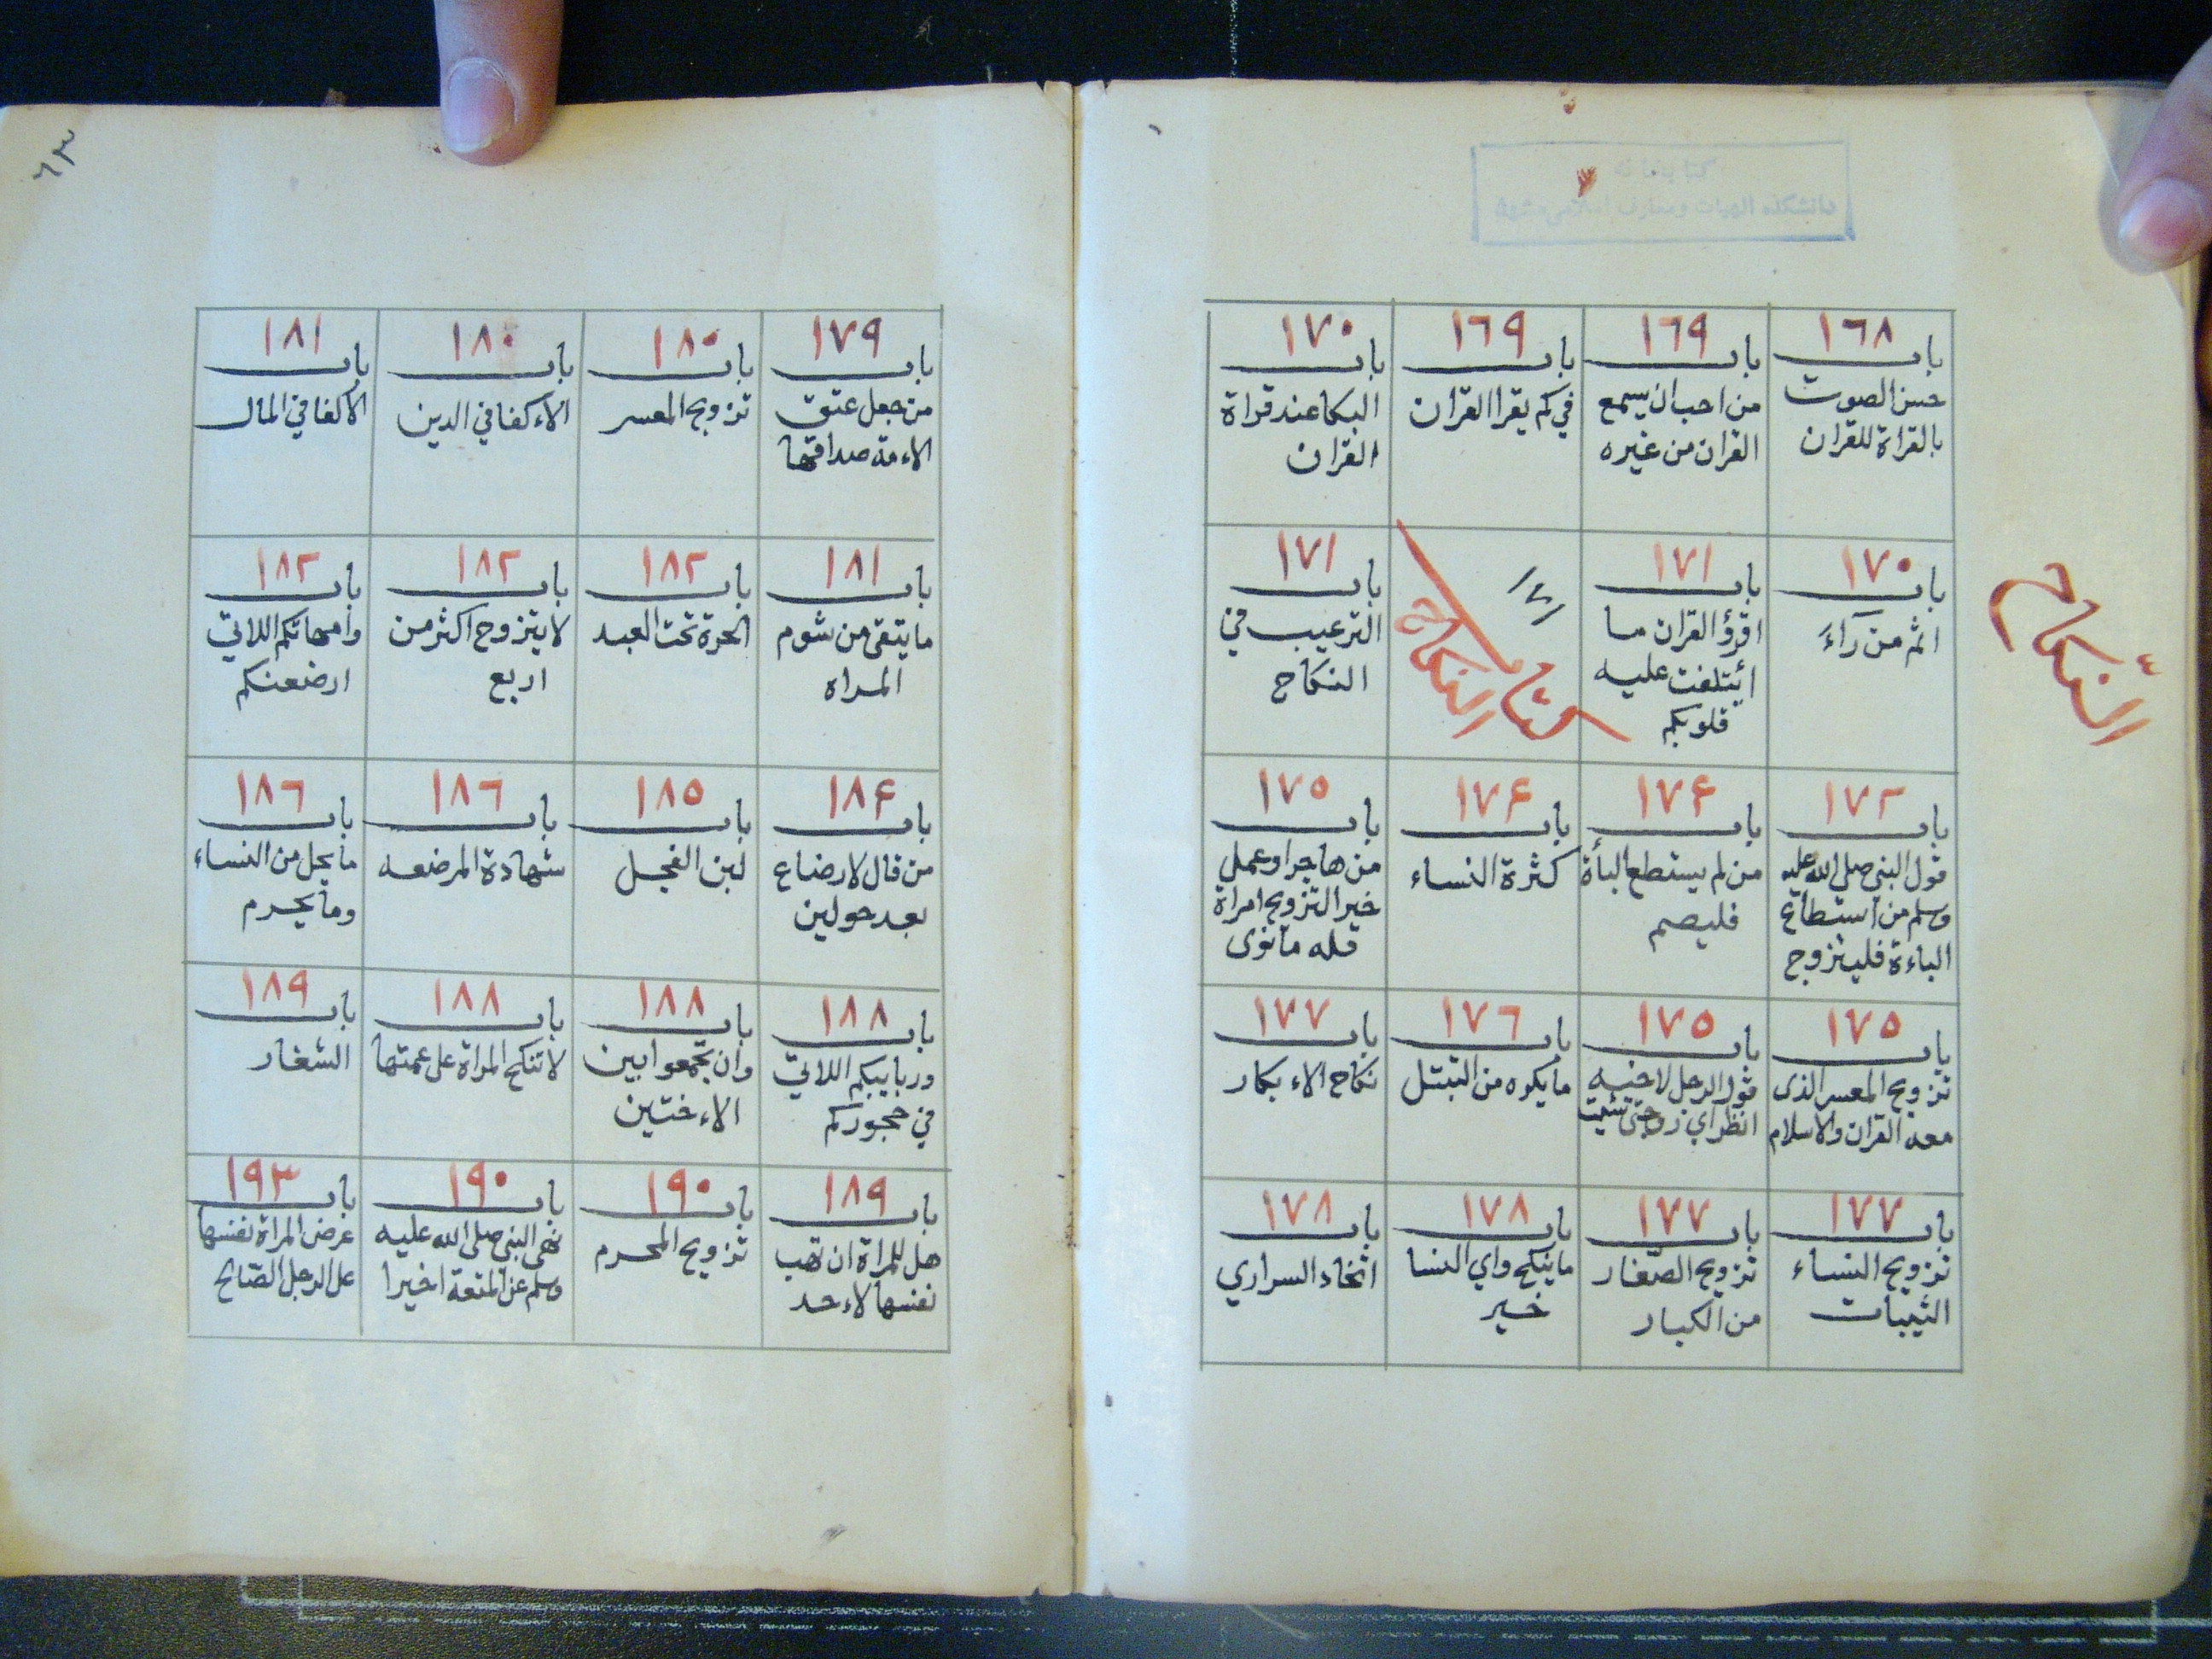 ١٦٨
باب
حسن الصوت
بالقراة للقران
١٦٩
باب
من احب ان يسمع
القران من غيره
١٦٩
باب
في كم يقرا القران
١٧٠
باب
البكا عند قراة
القران
١٧٠
باب
اثم من رآءَ
١٧١
باب
اقرؤ القران ما
ائتلفت عليه
قلوبكم
١٧١
كتاب
النكاح
١٧١
باب
الترغيب في
النكاح
النّكاح
١٧٢
باب
قول النبي صلى الله عليه
وسلم من استطاع
الباءة فليتزوج
١٧۴
باب
من لم يستطع البأة
فليصم
١٧۴
باب
كثرة النساء
١٧٥
باب
من هاجر او عمل
خير التزويج امراة
فله ما نوى
١٧٥
باب
تزويج المعسر الذى
معه القران والاسلام
١٧٥
باب
قول الرجل لاخيه
انظر اي زوجتى شيت
١٧٦
باب
ما يكره من التبتل
١٧٧
باب
نكاح الاءبكار
١٧٧
باب
تزويج النساء
الثيبات
١٧٧
باب
تزويج الصّغار
من الكبار
١٧٨
باب
ما ينكح واي النسا
خير
١٧٨
باب
اتخاد السراري
٦٣
١٧٩
باب
من جعل عتق
الاءمة صداقها
١٨٠
باب
تزويج المعسر
١٨٠
باب
الاءكفا في الدين
١٨١
باب
الاكفا في المال
١٨١
باب
ما يتقى من شوم
المراه
١٨٢
باب
الحرة تحت العبد
١٨٢
باب
لا يتزوج اكثر من
اربع
١٨٢
باب
وامهاتكم اللاتي
ارضعنكم
١٨۴
باب
من قال لا رضاع
بعد حولين
١٨٥
باب
لبن الفحل
١٨٦
باب
شهادة المرضعه
١٨٦
باب
ما يحل من النساء
وما يحرم
١٨٨
باب
وربايبكم اللاتي
في حجوركم
١٨٨
باب
وان تجمعوا بين
الاءختين
١٨٨
باب
لا تنكح المراة على عمتها
١٨٩
باب
الشغار
١٨٩
باب
هل للمراة ان تهب
نفسها لاءحد
١٩٠
باب
تزويج المحرم
١٩٠
باب
نهى النبي صلى الله عليه
وسلم عن المتعة اخيرا
١٩٣
باب
عرض المراة نفسها
على الرجل الصّالح